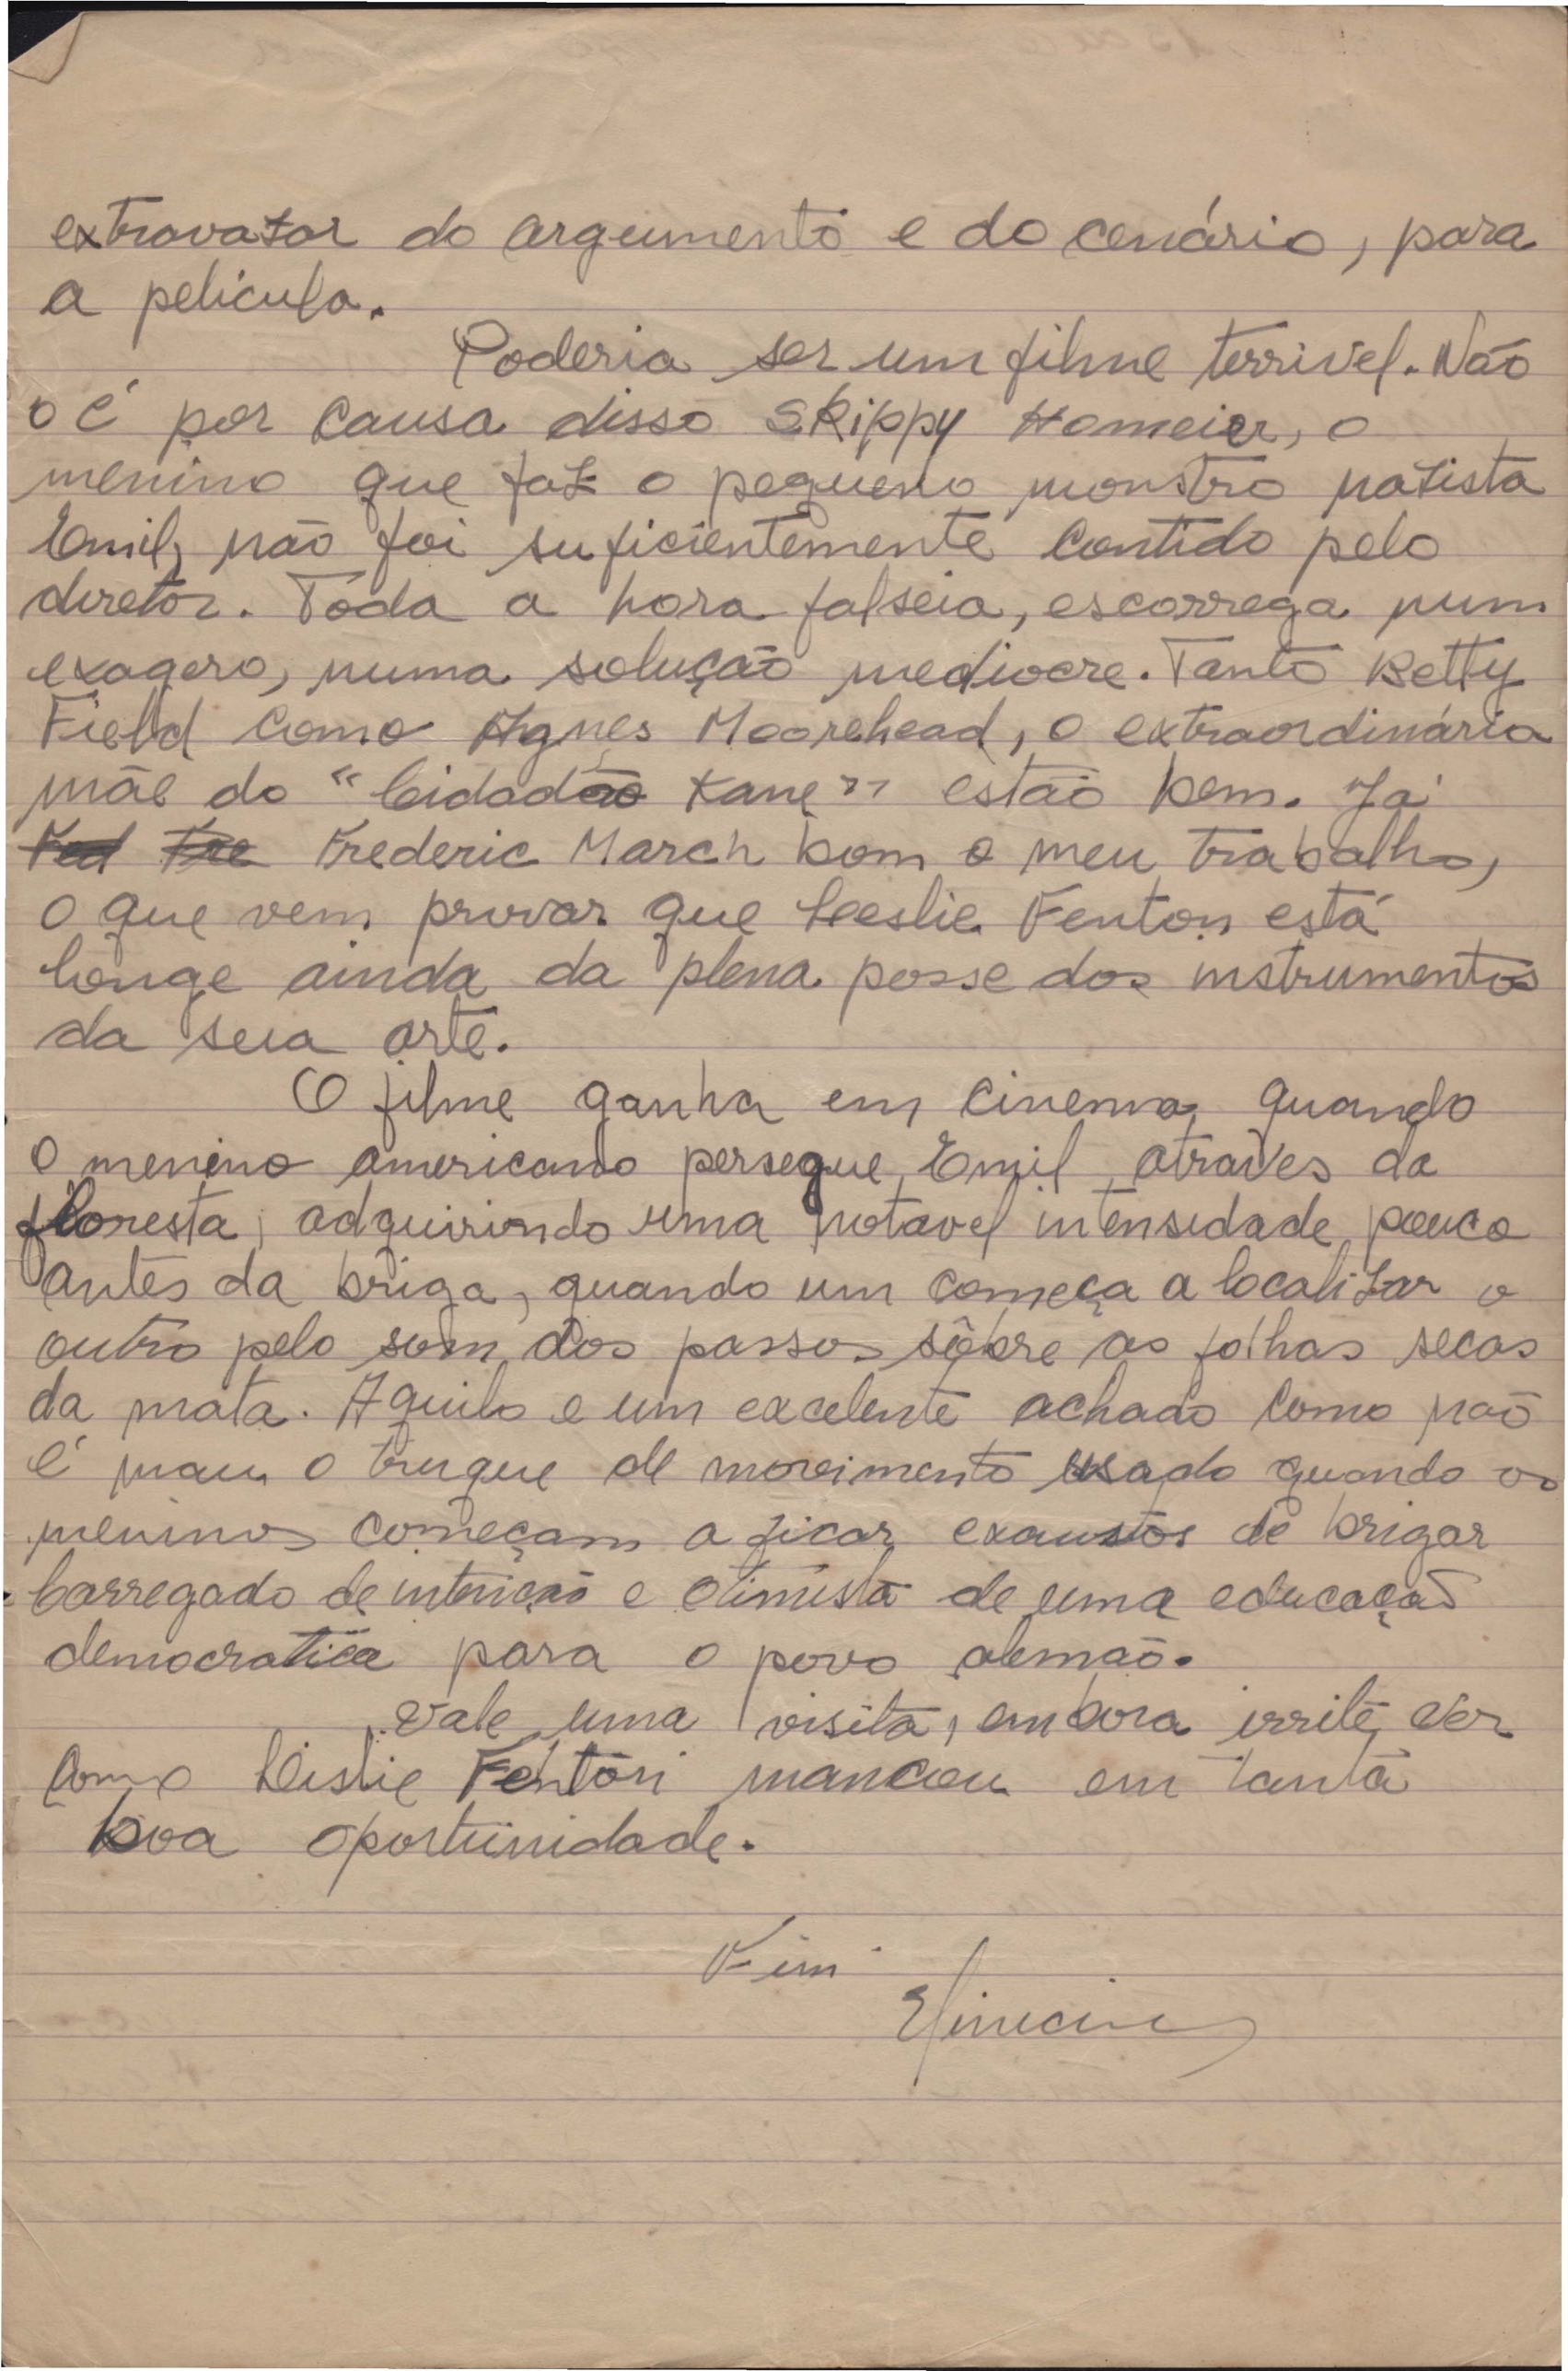 extravazar do argumento e do cenário, para
a pelicula.
Poderia ser um filme terrivel. Não
o é por causa disso Skippy Homeier, o
menino que faz o pequeno monstro nazista
Emil, não foi suficientemente contido pelo
diretor. Tôda a hora falseia, escorrega num
exagero, numa solução mediocre. Tanto Betty
Field como Agnes Moorehead, a extraordinária
mãe do "Cidadão Kane" estão bem. Já
Fred Fre Frederic March bom o meu trabalho,
o que vem provar que Leslie Fenton está
longe ainda da plena posse dos instrumentos
da sua arte.
O filme ganha em cinema, quando
o menino americano persegue Emil, atraves da
floresta, adquirindo uma notavel intensidade pouco
antes da briga, quando um começa a localizar o
outro pelo som dos passos sôbre as folhas secas
da mata. Aquilo e um excelente achado como não
é mau o truque de movimento usado quando os
meninos começam a ficar exaustos de brigar
Carregado de intenição e otimista de uma educação
democratica para o povo alemão.
Vale uma visita, embora irrite vêr
como Leslie Fenton mancou em tanta
boa oportunidade.
Fim
Vinicius